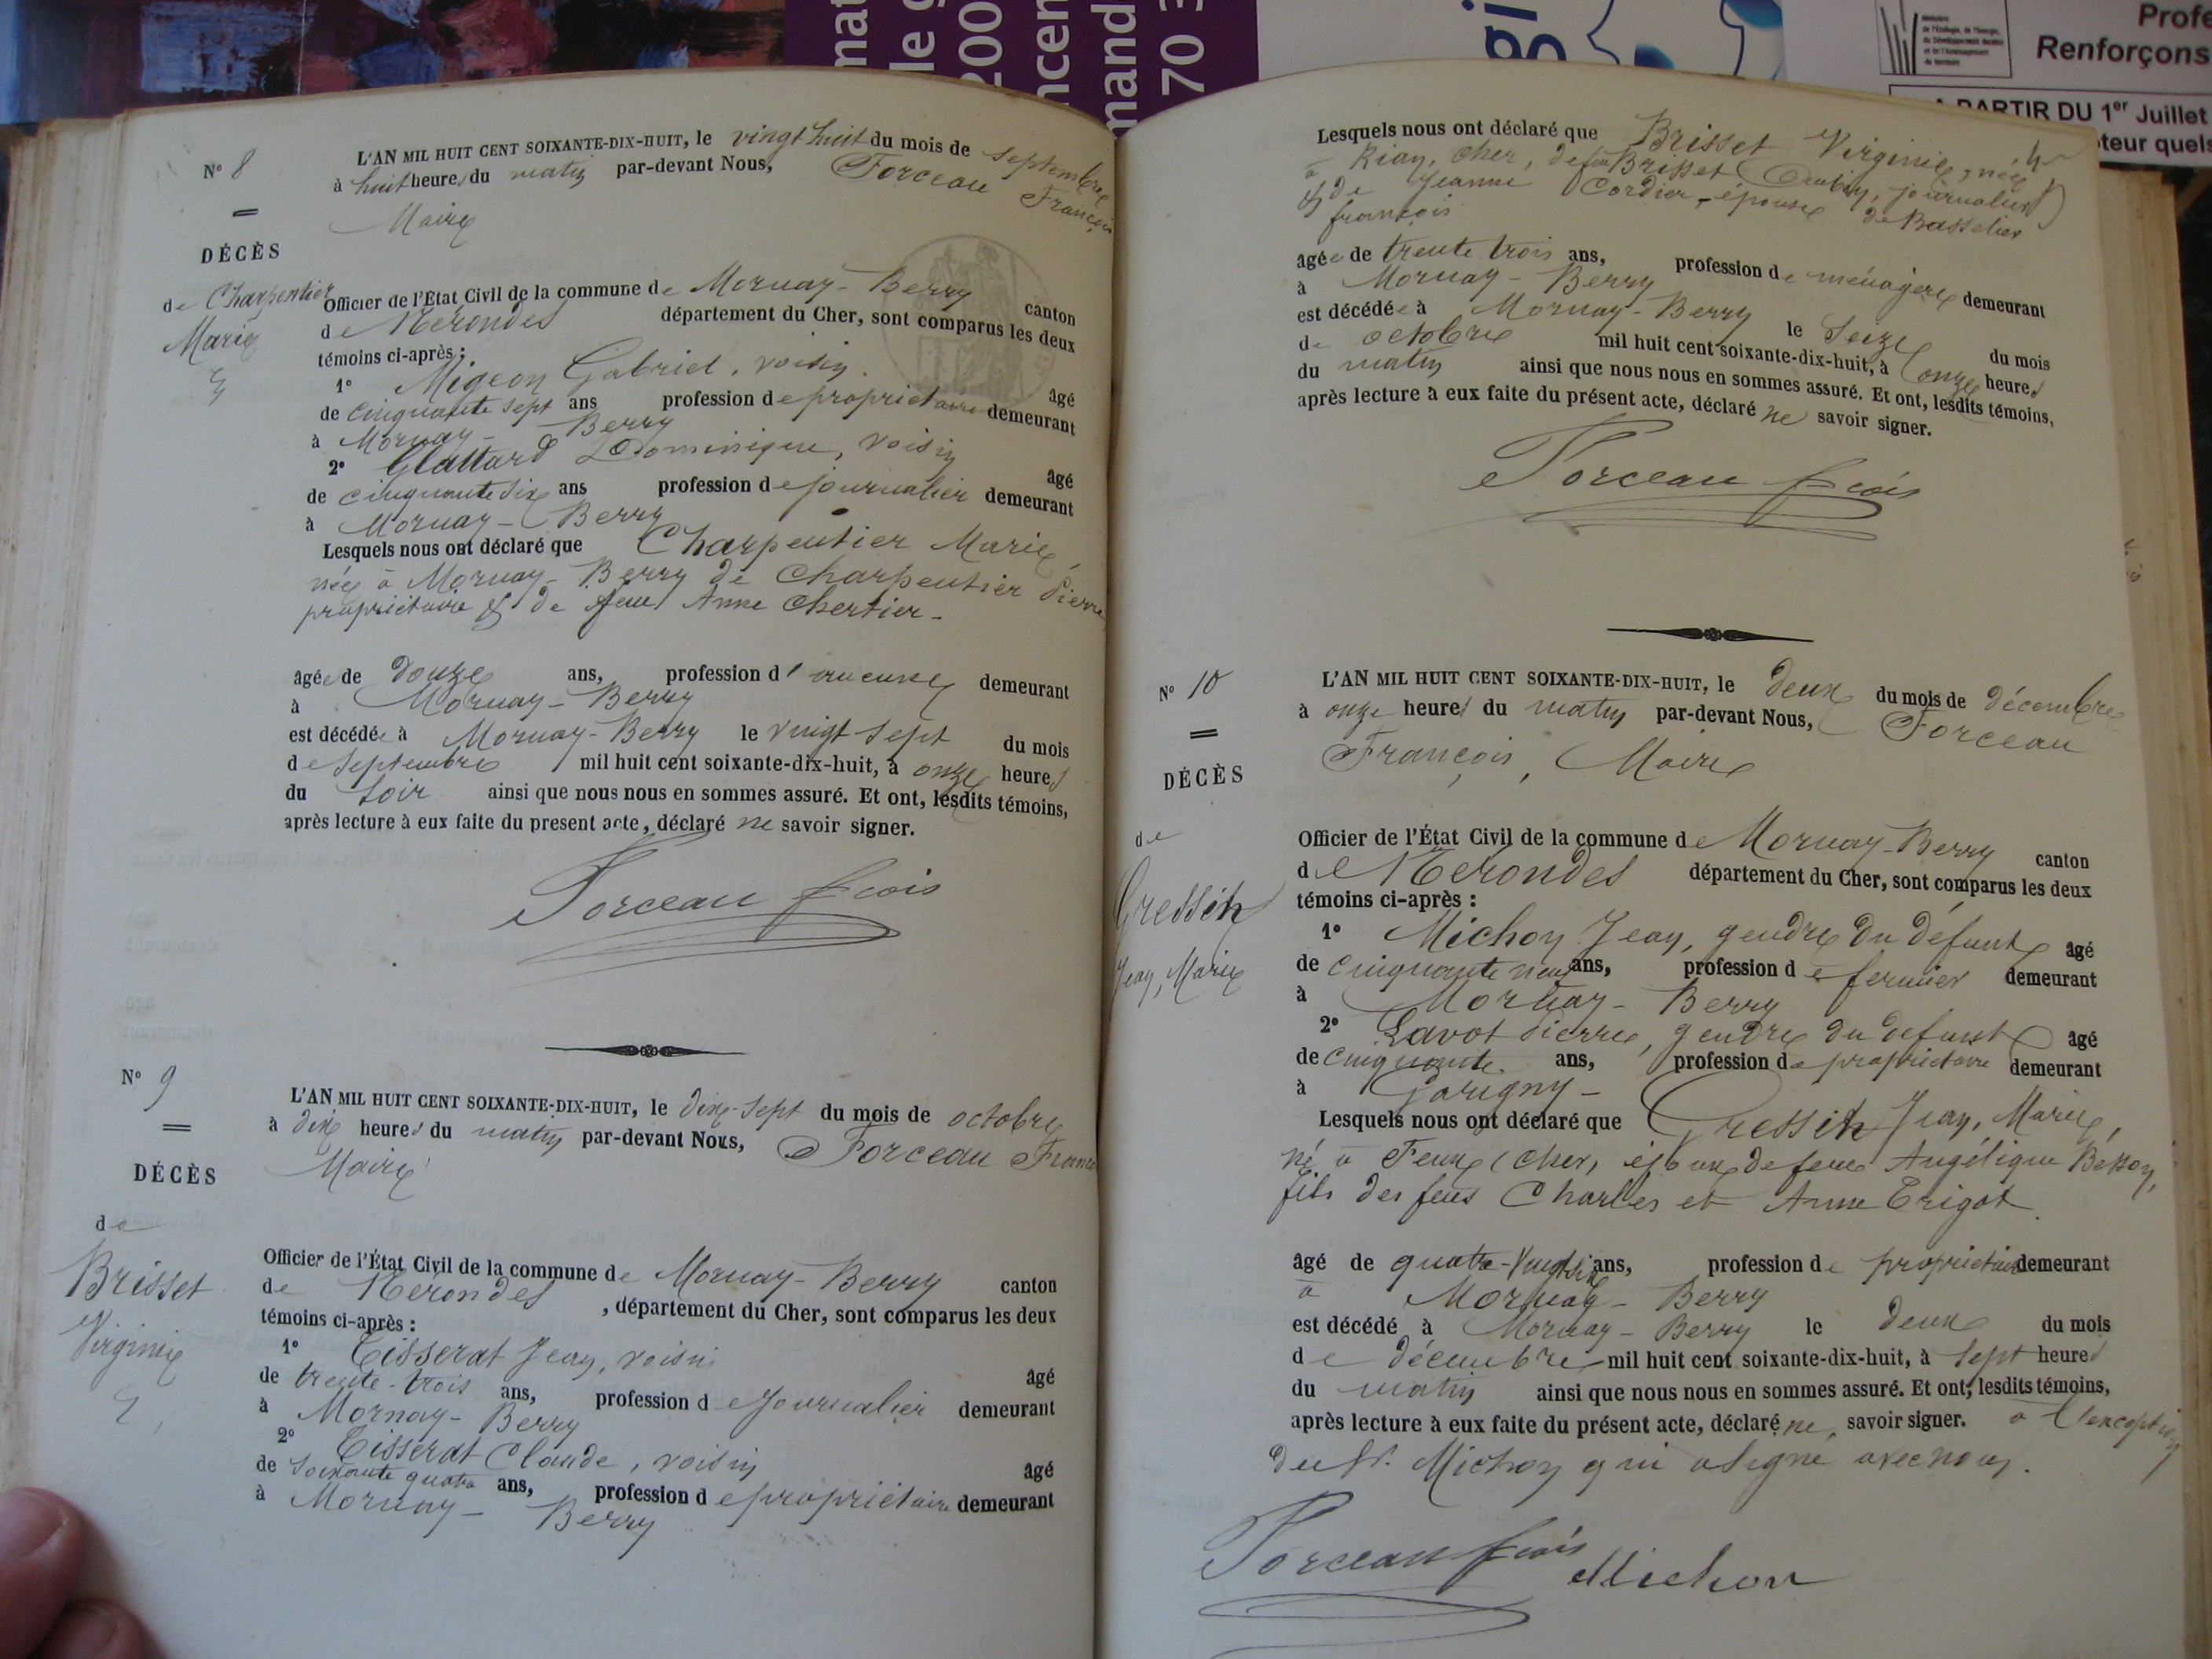 mat
le g
200
ncen
mand
70 3
gi
Profe
Renforçons
A PARTIR DU 1er Juillet
oteur quels
N° 8
DÉCÈS
de Charpentier
Marie
L'AN MIL HUIT CENT SOIXANTE-DIX-HUIT, le vingt huit du mois de septembre
à huit heures du matin par-devant Nous, Forceau François
Maire
Officier de l'État Civil de la commune de Mornay-Berry canton
de Nérondes département du Cher, sont comparus les deux
témoins ci-après :
1° Migeon Gabriel, voisin. âgé
de cinquante sept ans profession de propriétaire demeurant
à Mornay-Berry
2° Glattard Dominique, voisin âgé
de cinquante six ans profession de journalier demeurant
à Mornay-Berry
Lesquels nous ont déclaré que Charpentier Marie,
née à Mornay-Berry de Charpentier Pierre
propriétaire & de feue Anne Chertier-
âgée de douze ans, profession d'aucune demeurant
à Mornay-Berry
est décédée à Mornay-Berry le vingt sept du mois
de Septembre mil huit cent soixante-dix-huit, à onze heures
du soir ainsi que nous nous en sommes assuré. Et ont, lesdits témoins,
après lecture à eux faite du present acte, déclaré ne savoir signer.
Forceau fcois
N° 9
DÉCÈS
de
Brisset
Virginie
L'AN MIL HUIT CENT SOIXANTE-DIX-HUIT, le dix-sept du mois de octobre
à dix heures du matin par-devant Nous, Forceau Franc
Maire
Officier de l'État Civil de la commune de Mornay-Berry canton
de Nérondes, département du Cher, sont comparus les deux
témoins ci-après :
1° Tisserat Jean, voisin âgé
de trente-trois ans, profession de journalier demeurant
à Mornay-Berry
2° Tisserat Claude, voisin âgé
de soixante quatre ans, profession de propriétaire demeurant
à Mornay-Berry
Lesquels nous ont déclaré que Brisset Virginie, née
à Rian, Cher, de feu Brisset Aubin, journalier
& de Jeanne Cordier, épouse de Basselier
françois
âgée de trente trois ans, profession de ménagère demeurant
à Mornay-Berry
est décédée à Mornay-Berry le Seize du mois
de octobre mil huit cent soixante-dix-huit, à onze heures
du matin ainsi que nous nous en sommes assuré. Et ont, lesdits témoins,
après lecture à eux faite du présent acte, déclaré ne savoir signer.
Forceau fcois
N° 10
DÉCÈS
de
Gressin
Jean, Marie
L'AN MIL HUIT CENT SOIXANTE-DIX-HUIT, le deux du mois de décembre
à onze heures du matin par-devant Nous, Forceau
François, Maire
Officier de l'État Civil de la commune de Mornay-Berry canton
de Nérondes département du Cher, sont comparus les deux
témoins ci-après :
1° Michon Jean, gendre du défunt âgé
de cinquante neuf ans, profession de fermier demeurant
à Mornay-Berry
2° Lavot Pierre, gendre du défunt âgé
de cinquante ans, profession de propriétaire demeurant
à Garigny-
Lesquels nous ont déclaré que Gressin Jean, Marie,
né à Feux (Cher, époux de feue Angélique Besson,
fils des feus Charles et Anne Trigot.
âgé de quatre-vingt six ans, profession de propriétaire demeurant
à Mornay-Berry
est décédé à Mornay-Berry le deux du mois
de décembre mil huit cent soixante-dix-huit, à sept heures
du matin ainsi que nous nous en sommes assuré. Et ont, lesdits témoins,
après lecture à eux faite du présent acte, déclaré ne savoir signer. à l'exception
du Sr. Michon qui a signé avec nous.
Forceau fcois Michon